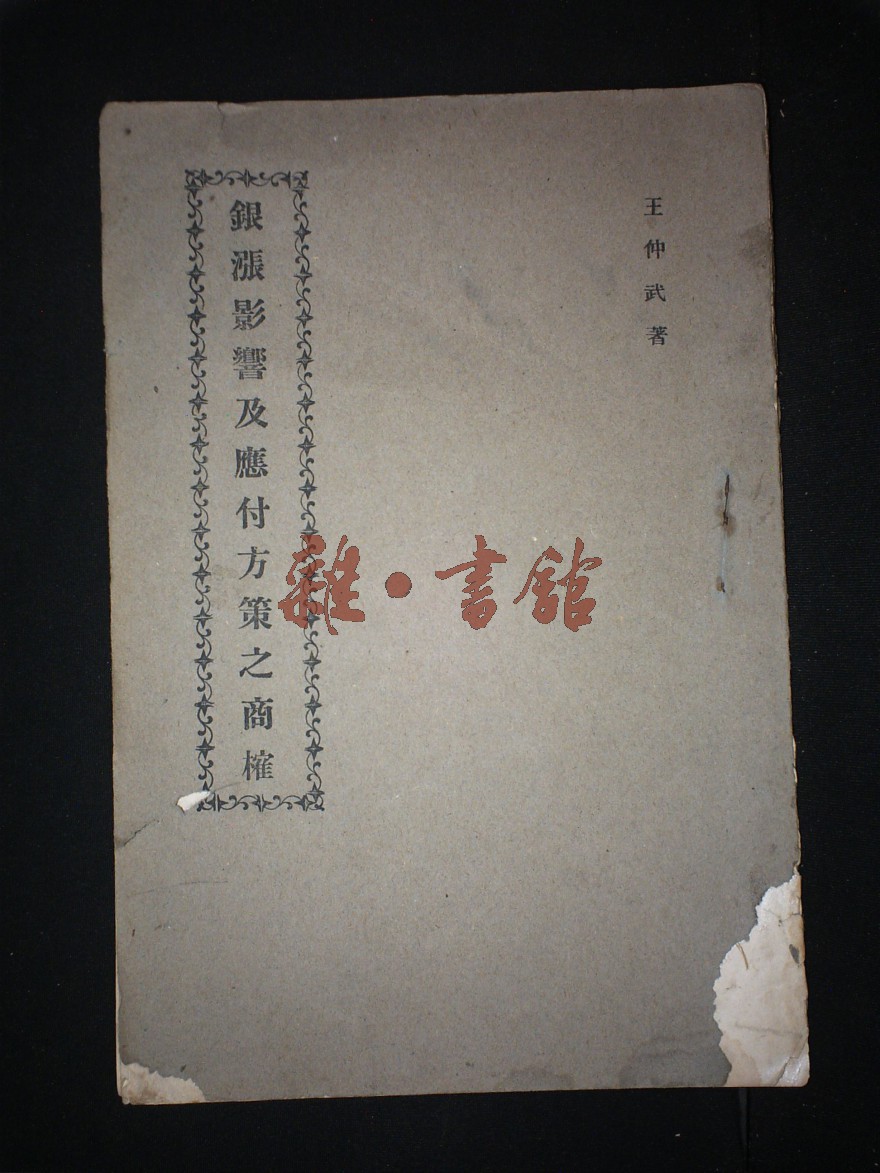 王仲武著
銀漲影響及應付方策之商榷
雜·書館